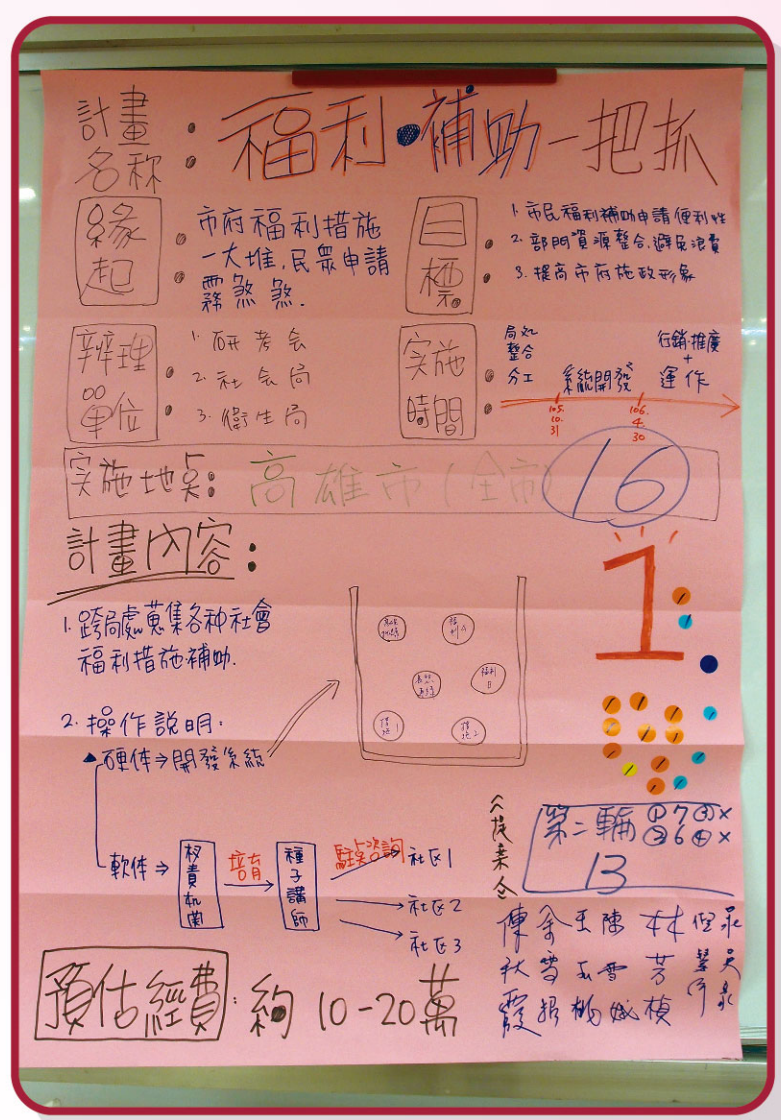 計畫名称：福利•補助一把抓
緣起：
市府福利措施
一大堆,民眾申請
霧煞煞.
目標：
1. 市民福利補助申請便利性
2. 部門資源整合,避免浪費
3. 提高市府施政形象
辦理單位：
1. 研考会
2. 社会局
3. 衛生局
实施時間：
局処整合分工
系統開發
行銷.推廣
+
運作
105.10.31
106.4.30
实施地点：高雄市(全市)
16
計畫內容：
1
1. 跨局處蒐集各种社會
福利措施補助.
福利A
福利B
2. 操作説明：
▲硬体⇒開發系統
軟体⇒
权責机関
培育
種子講師
駐点咨詢
社区1
社区2
社区3
第二輪
①7 ③×
②6 ④×
13
預估經費：約10-20萬